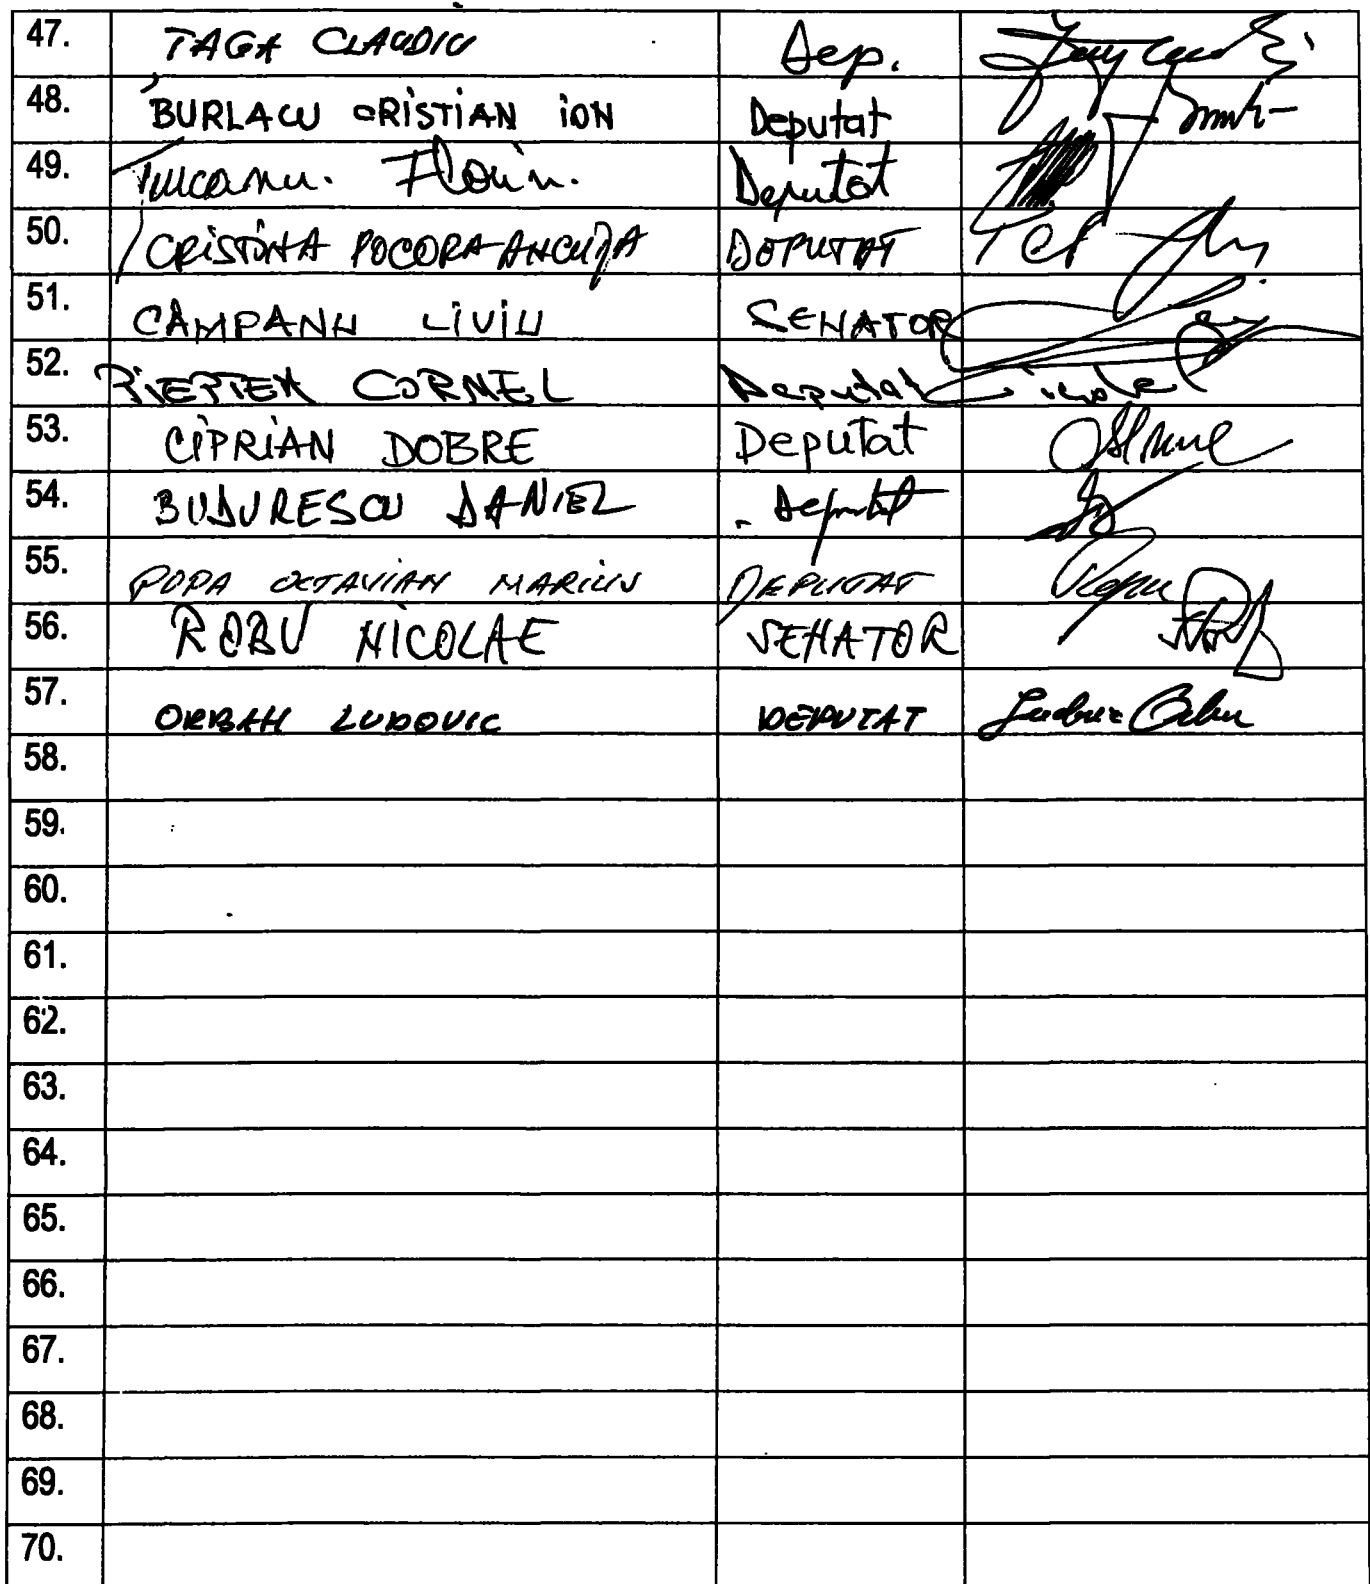 47. TAGA CLAUDIU Dep.
48. BURLACU CRISTIAN ION Deputat
49. Țurcanu. Florin. Deputat
50. CRISTINA POCORA-ANCUȚA DEPUTAT
51. CÂMPANU LIVIU SENATOR
52. CORNEL Deputat
53. CIPRIAN DOBRE Deputat
54. BUDURESCU DANIEL Deputat
55. POPA OCTAVIAN MARIUS DEPUTAT
56. ROBU NICOLAE SENATOR
57. ORBAN LUDOVIC DEPUTAT Ludovic Orban
58.
59.
60.
61.
62.
63.
64.
65.
66.
67.
68.
69.
70.